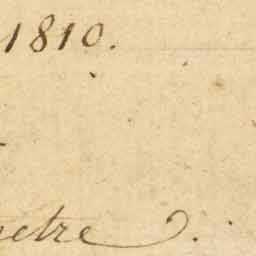 1810.
etre